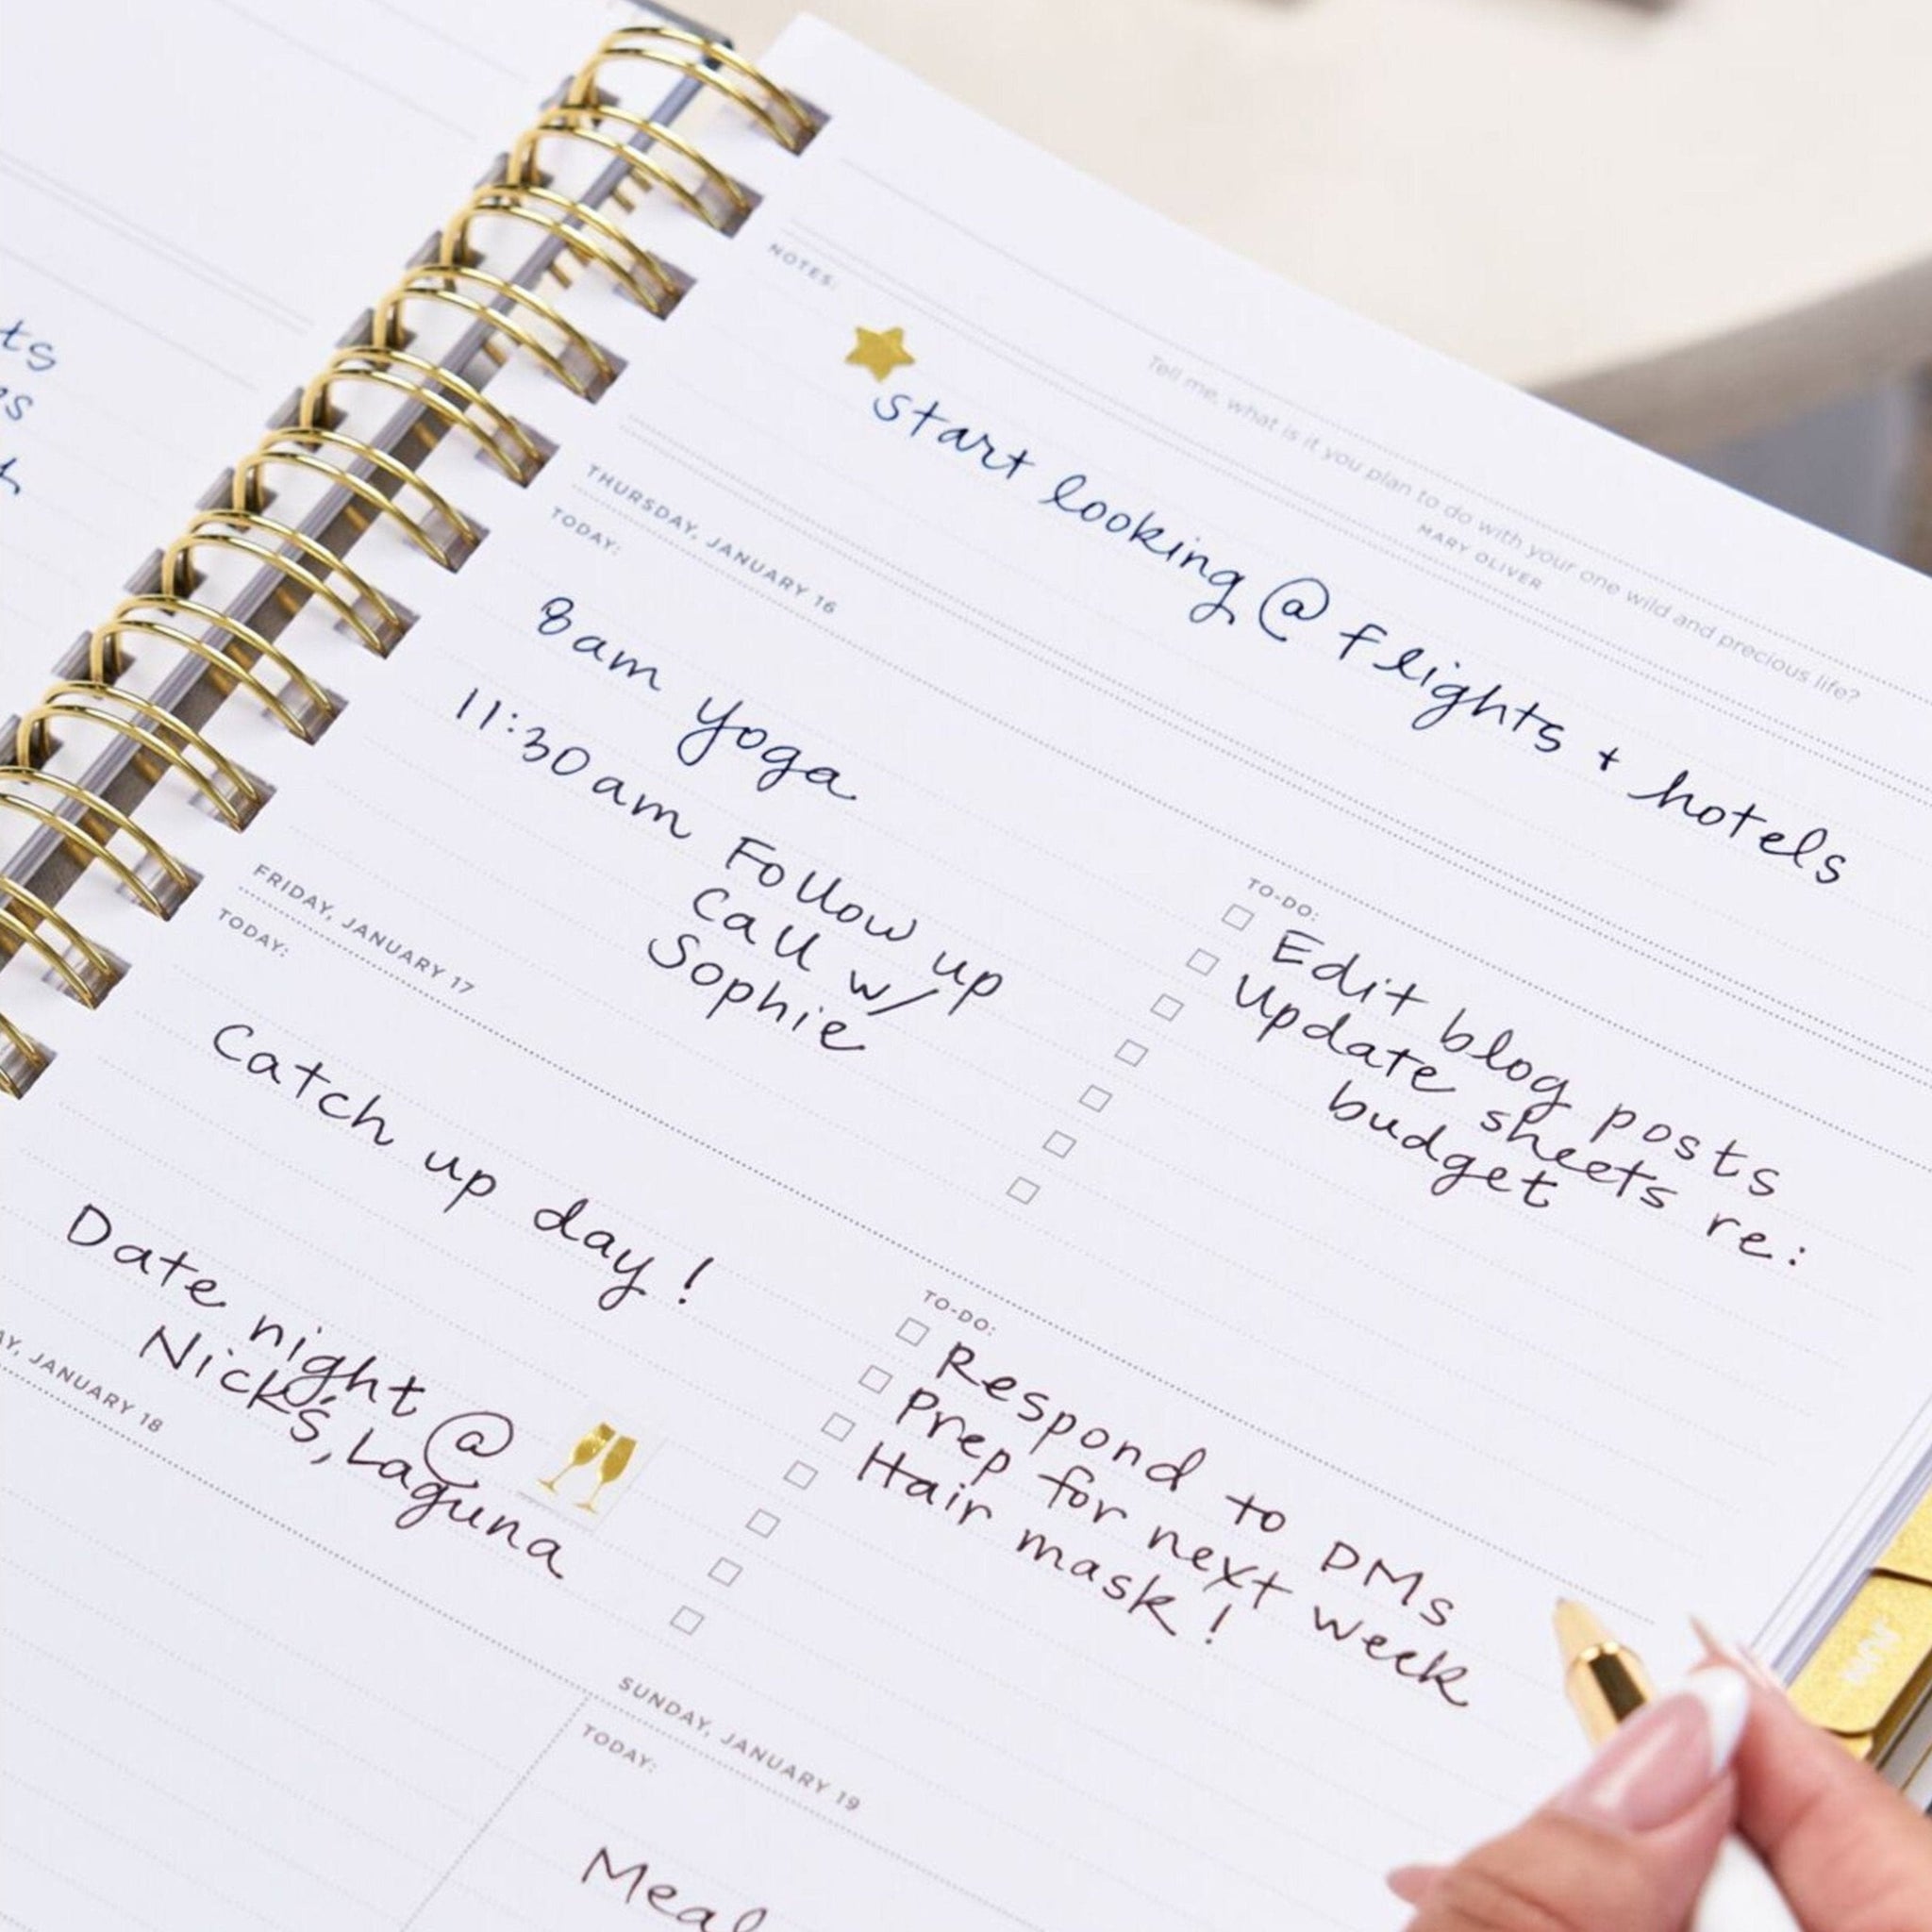 NOTES:
Tell me, what is it you plan to do with your one wild and precious life?
MARY OLIVER
start looking @ flights + hotels
THURSDAY, JANUARY 16
TODAY:
8am Yoga
11:30am Follow up
Call w/
Sophie
TO-DO:
Edit blog posts
Update sheets re:
budget
FRIDAY, JANUARY 17
TODAY:
Catch up day!
Date night @
Nick's, Laguna
TO-DO:
Respond to DMs
Prep for next week
Hair mask!
JANUARY 18
SUNDAY, JANUARY 19
TODAY:
Meal